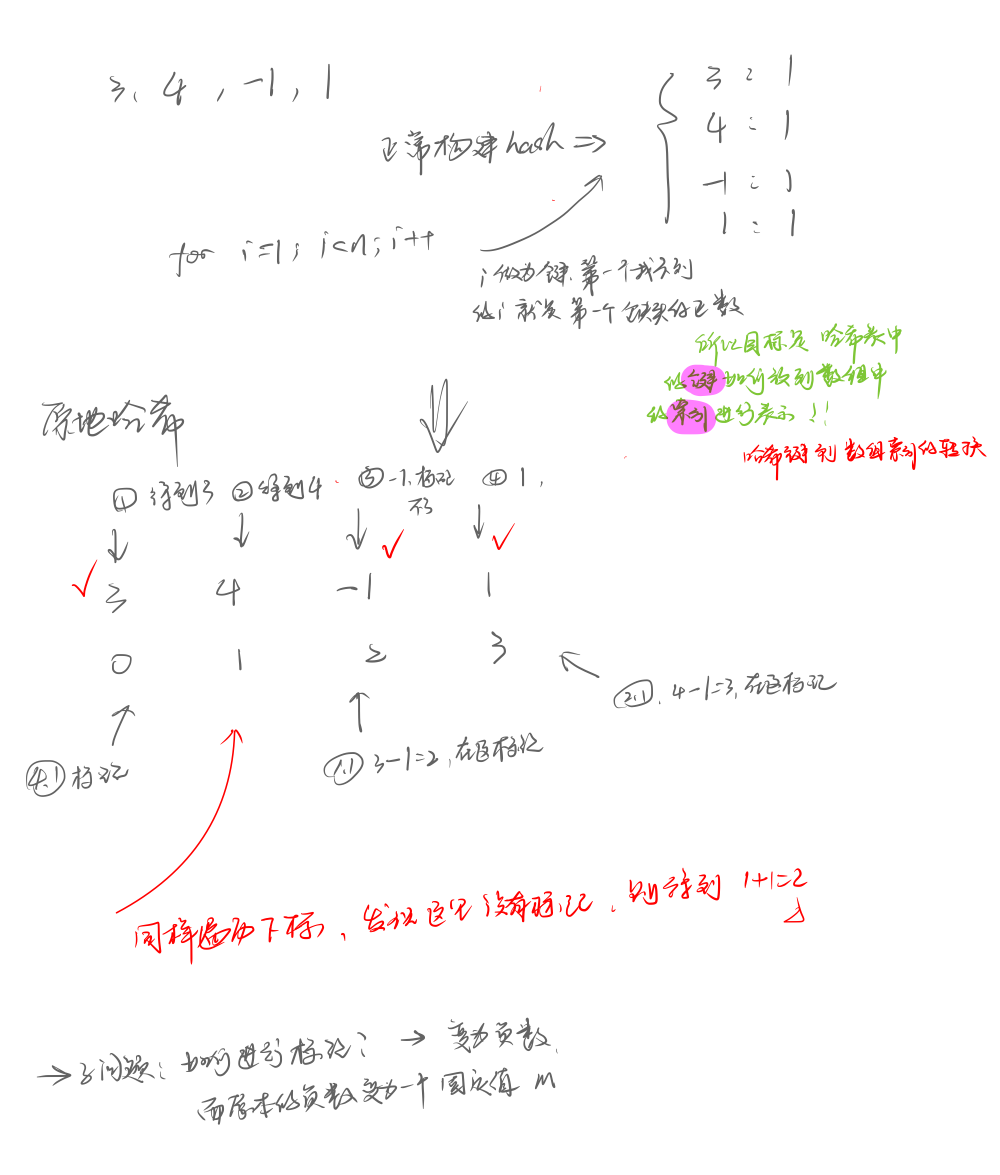 3, 4, -1, 1
正常构建hash =>
3 : 1
4 : 1
-1 : 1
1 : 1
for i=1; i<n; i++
i 做为键.第一个找不到
的i 就是第一个缺失的正数
所以目标是 哈希表中
的键如何放到数组中
的索引进行表示!!
哈希键到数组索引的转换
原地哈希
① 得到3 ② 得到4 ③ -1,标记 ④ 1,
不了
3 4 -1 1
0 1 2 3
2.1. 4-1=3,在这标记
4.1 标记
1.1 3-1=2,在这标记
同样遍历下标, 发现这里没有标记, 则得到 1+1=2
→ 子问题: 如何进行标记? → 变为负数.
而原本的负数变为一个固定值 m